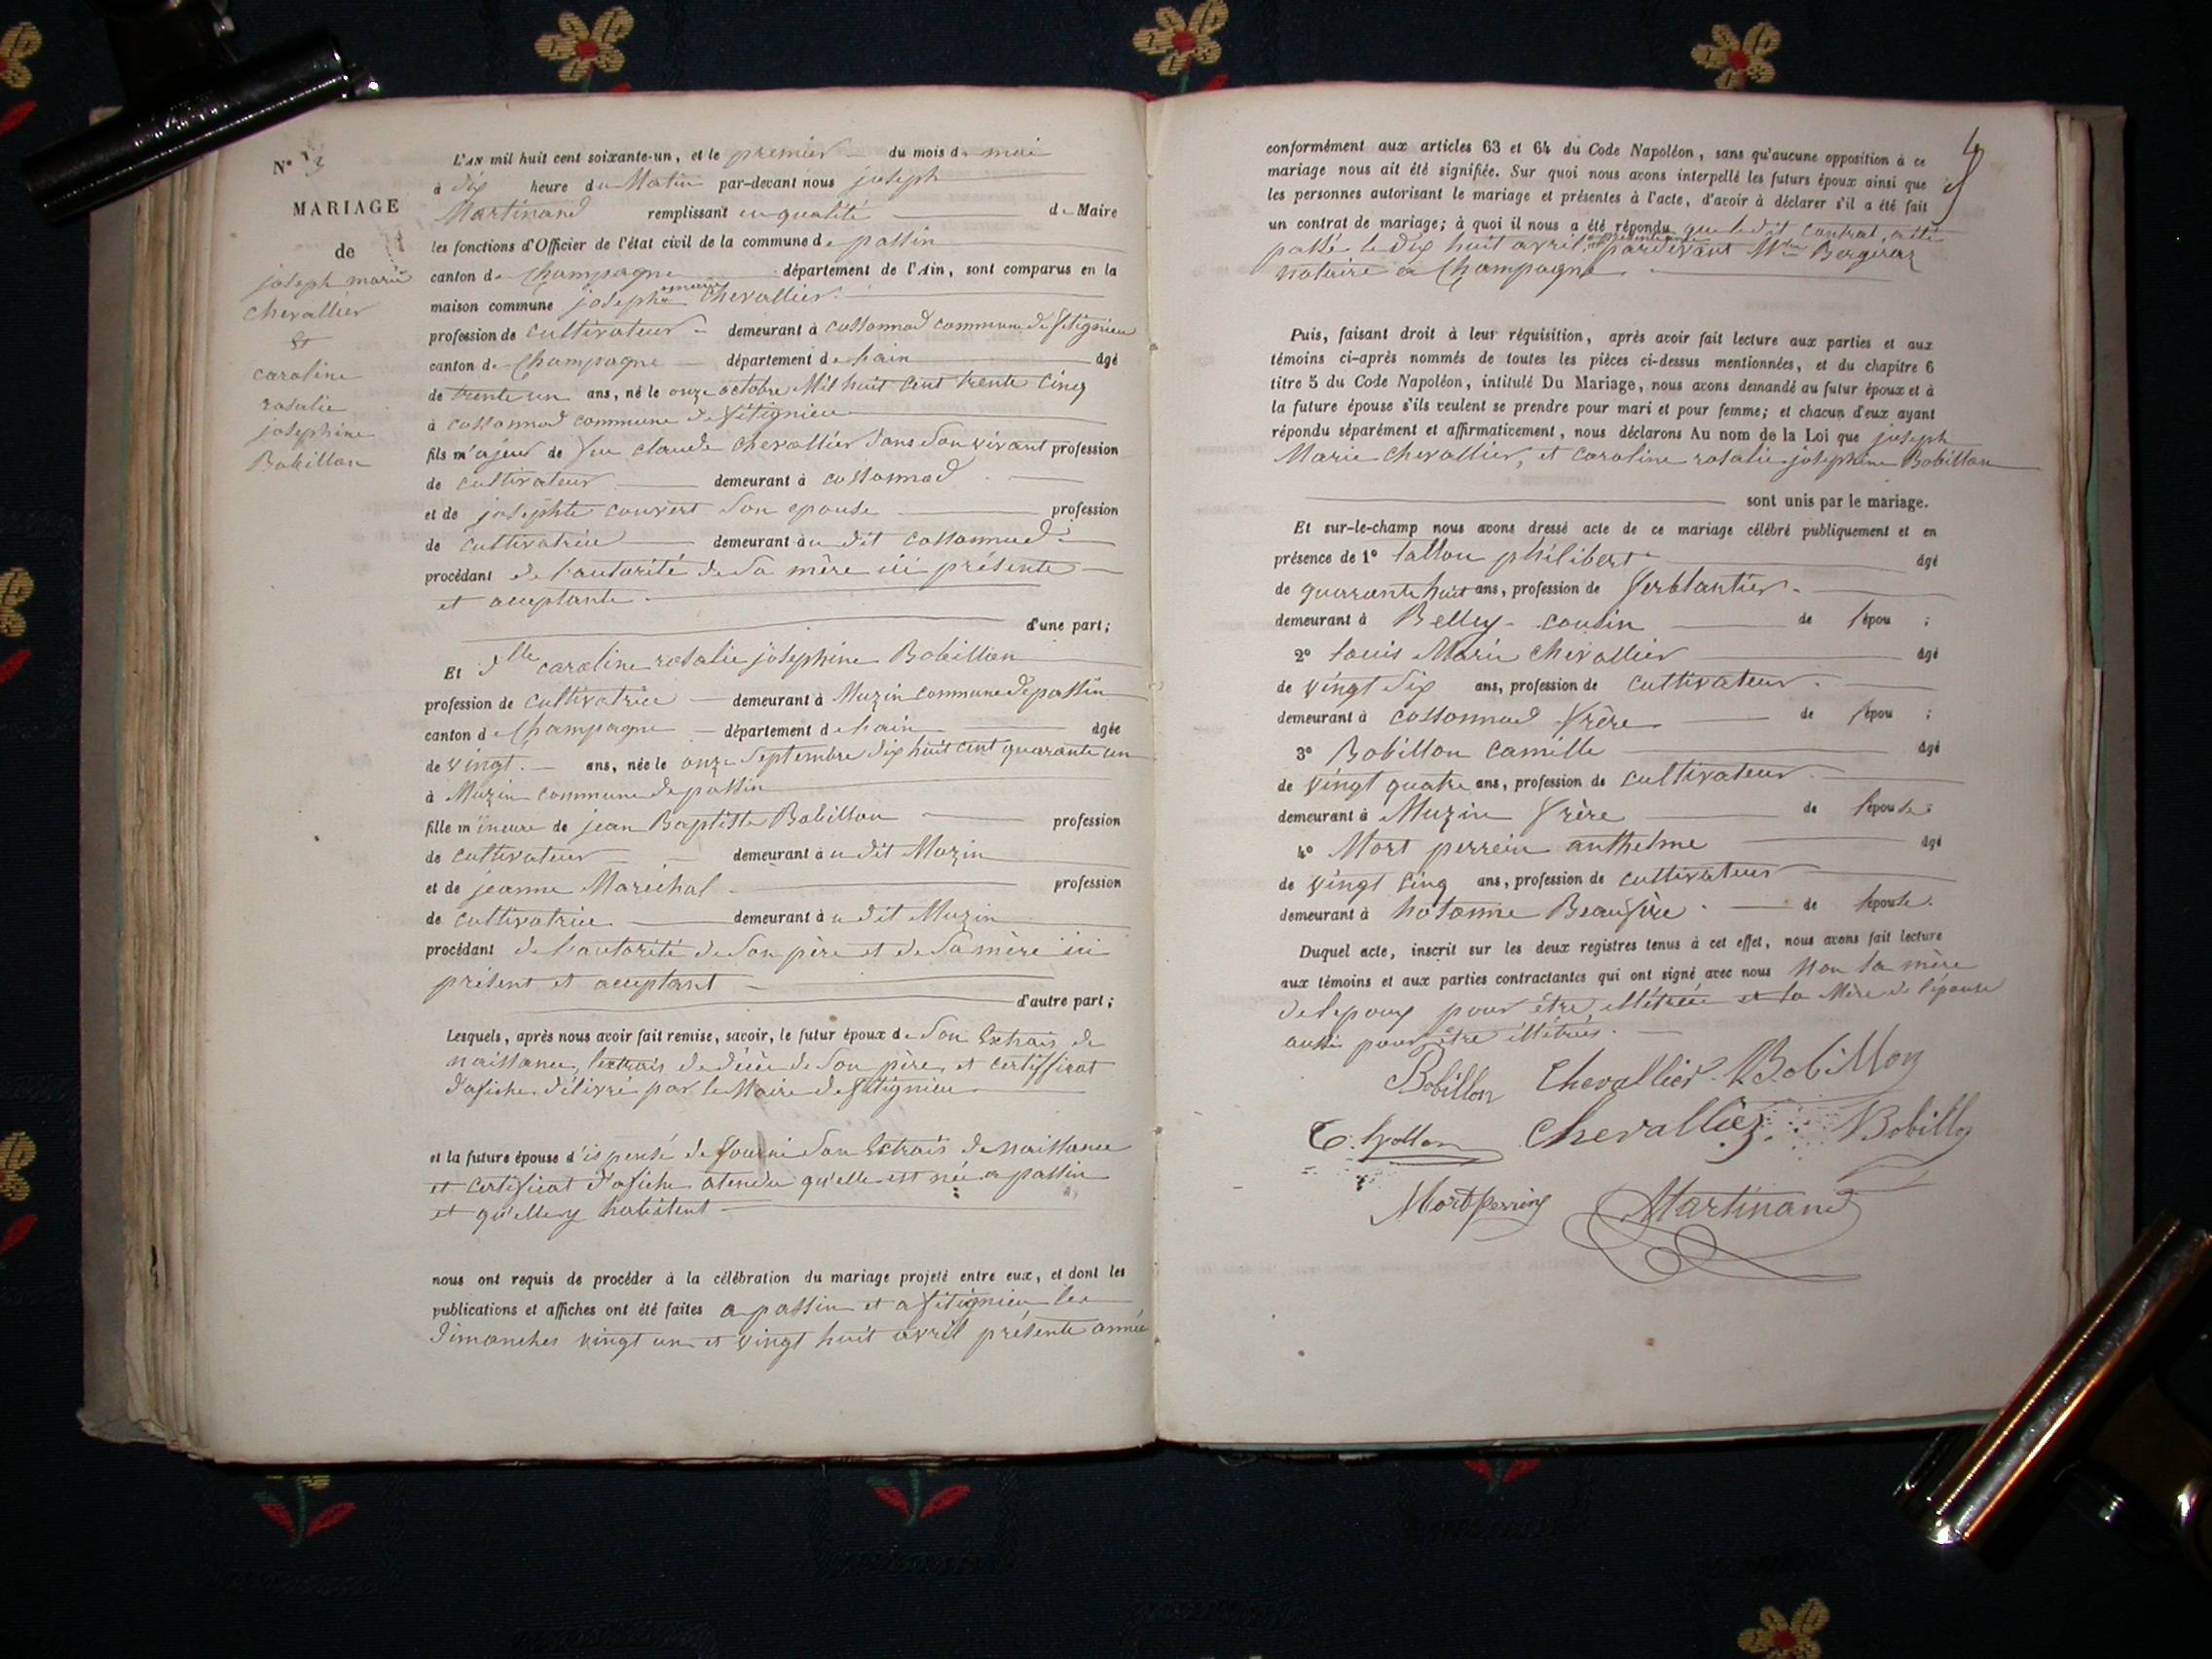 N° 3
MARIAGE
de
joseph marie
chevallier
et
caroline
rosalie
josephine
Bobillon
L'AN mil huit cent soixante-un, et le premier du mois de mai
à dix heure du Matin par-devant nous joseph
Martinand remplissant en qualité de Maire
les fonctions d'Officier de l'état civil de la commune de passin
canton de Champagne département de l'Ain, sont comparus en la
maison commune joseph marie Chevallier
profession de cultivateur demeurant à cossonnod commune de fitignieu
canton de Champagne département de hain âgé
de trente un ans, né le onze octobre Mil huit Cent trente Cinq
à cossonnod commune de fitignieu
fils majeur de feu claude chevallier dans son vivant profession
de cultivateur demeurant à cossonnod
et de josephte convert son epouse profession
de cultivatrice demeurant au dit cossonnod
procédant de l'autorité de sa mère ici présente
et acceptante
d'une part;
Et dlle caroline rosalie josephine Bobillion
profession de cultivatrice demeurant à Muzin commune de passin
canton de Champagne département de hain âgée
de vingt ans, née le onze Septembre dix huit cent quarante un
à Muzin commune de passin
fille mineure de jean Baptiste Bobillon profession
de cultivateur demeurant au dit Muzin
et de jeanne Maréchal profession
de cultivatrice demeurant au dit Muzin
procédant de l'autorité de son père et de sa mère ici
présent et acceptant
d'autre part;
Lesquels, après nous avoir fait remise, savoir, le futur époux de son Extrais de
naissance, l'extrais de décè de son père, et certifficat
d'afiche délivré par le Maire de fitignieu
et la future épouse dispensé de fournie son Extrais de naissance
et certificat d'afiche atendu qu'elle est née a passin
et qu'elle y habitent
nous ont requis de procéder à la célébration du mariage projeté entre eux, et dont les
publications et affiches ont été faites a passin et a fitignieu les
dimanches vingt un et vingt huit avril présente année
4
conformément aux articles 63 et 64 du Code Napoléon, sans qu'aucune opposition à ce
mariage nous ait été signifiée. Sur quoi nous avons interpellé les futurs époux ainsi que
les personnes autorisant le mariage et présentes à l'acte, d'avoir à déclarer s'il a été fait
un contrat de mariage; à quoi il nous a été répondu que le dit contrat, a été
passé le dix huit avril pardevant Mtre Bergerar
notaire a Champagne
Puis, faisant droit à leur réquisition, après avoir fait lecture aux parties et aux
témoins ci-après nommés de toutes les pièces ci-dessus mentionnées, et du chapitre 6
titre 5 du Code Napoléon, intitulé Du Mariage, nous avons demandé au futur époux et à
la future épouse s'ils veulent se prendre pour mari et pour femme; et chacun d'eux ayant
répondu séparément et affirmativement, nous déclarons Au nom de la Loi que joseph
Marie chevallier, et caroline rosalie josephine Bobillon
sont unis par le mariage.
Et sur-le-champ nous avons dressé acte de ce mariage célébré publiquement et en
présence de 1° tallon philibert âgé
de quarante huit ans, profession de ferblantier
demeurant à Belley cousin de l'épou ;
2° louis Marie chevallier âgé
de vingt Six ans, profession de cultivateur
demeurant à cossonnod frère de l'épou ;
3° Bobillon Camille âgé
de vingt quatre ans, profession de cultivateur
demeurant à Muzin frère de l'épouse;
4° Mort perrein anthelme âgé
de vingt Cinq ans, profession de cultivateur
demeurant à hotonne Beaufrère de l'épouse.
Duquel acte, inscrit sur les deux registres tenus à cet effet, nous avons fait lecture
aux témoins et aux parties contractantes qui ont signé avec nous Non la mère
de l'epoux pour être illétrée et la Mère de l'épouse
aussi pour être illétrées
Bobillon Chevallier Bobillon
Chevallier Bobillon
Mortperring Martinand